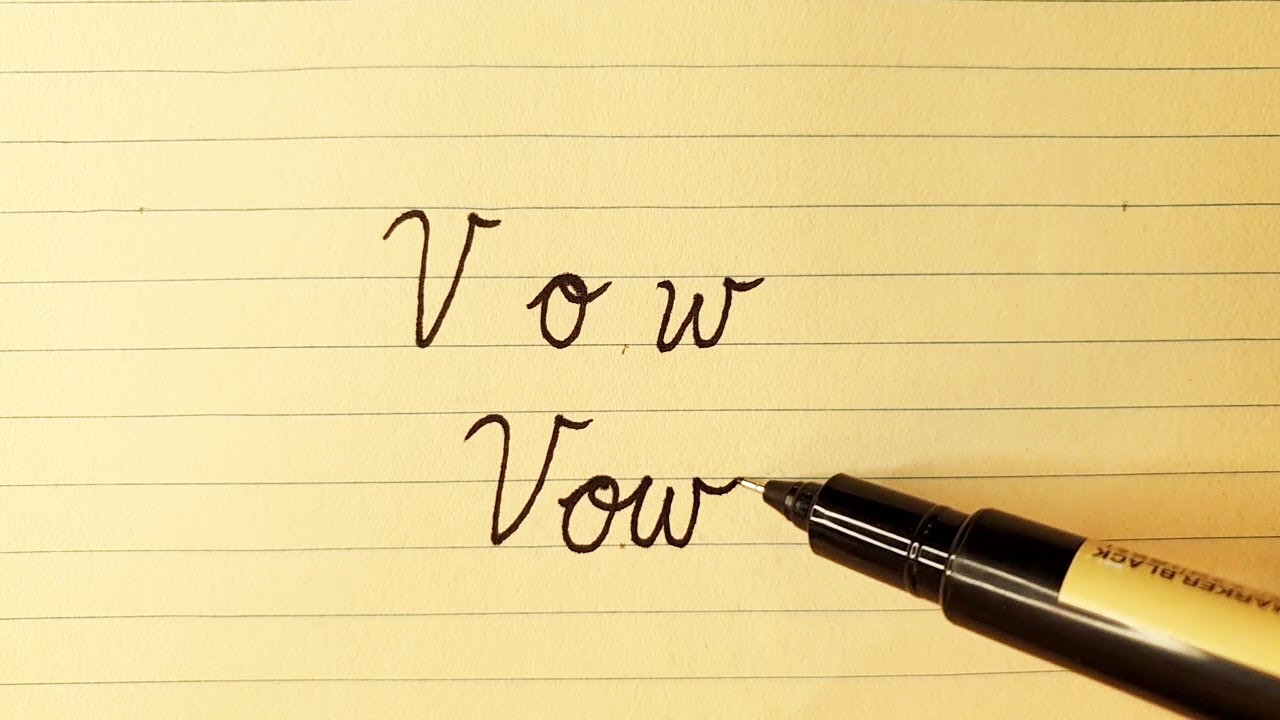 V o w
Vow
MARKER BLACK